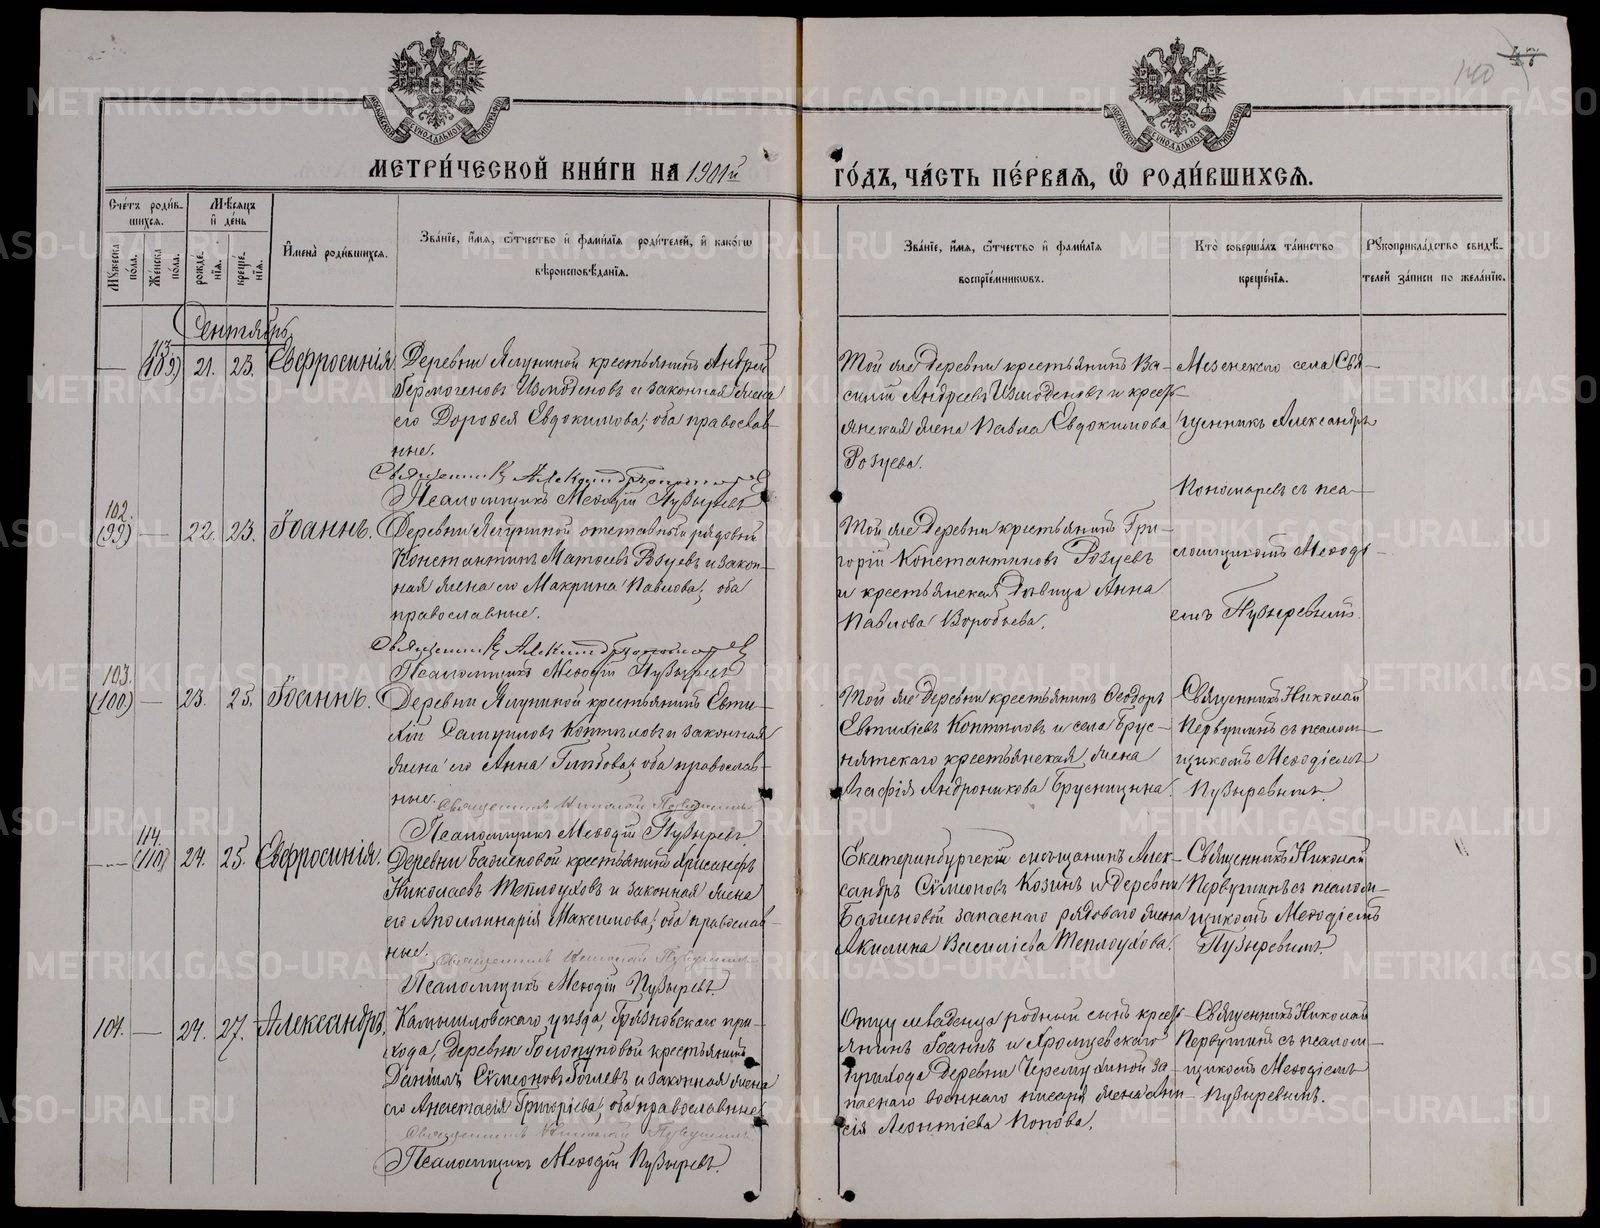 140
МЕТРИ́ЧЕСКОЙ КНИ́ГИ НА 1901й
ГО́ДЪ, ЧА́СТЬ ПЕ́РВАЯ, Ѡ РОДИ́ВШИХСЯ.
Счетъ роди́в-
шихся.
Мꙋжеска по́ла.
Же́нска по́ла.
Мѣсяцъ и де́нь
рожде́-
нїя.
креще́-
нїя.
И҆мена̀ роди́вшихся.
Зва́нїе, и҆́мя, ѻ҆́тчество и҆ фами́лїя роди́телей, и҆ како́гѡ
вѣроисповѣ́данїя.
Зва́нїе, и҆́мя, ѻ҆́тчество и҆ фами́лїя
воспрїе́мникѡвъ.
Кто̀ соверша́лъ та́инство
креще́нїя.
Рꙋкоприкла́дство свидѣ́-
телей за́писи по жела́нїю.
Сентябрь
113
(109) 21. 23. Евфросинія. Деревни Ялуниной крестьянинъ Андрей
Гермогеновъ Измоденовъ и законная жена
его Дорофея Евдокимова; оба православ-
ные.
Священникъ Александръ Пономаревъ
Псаломщикъ Меѳодій Пузыревъ
Той же деревни крестьянинъ Ва-
силій Андреевъ Измоденовъ и кресть-
янская жена Павла Евдокимова
Розуева.
Мезенскаго села Свя-
щенникъ Александръ
Пономаревъ съ пса-
ломщикомъ Меѳоді-
емъ Пузыревымъ.
102.
(99) — 22. 23. Іоаннъ. Деревни Ялуниной отставной рядовый
Константинъ Матѳеевъ Розуевъ и закон-
ная жена его Макрина Павлова; оба
православные.
Священникъ Александръ Пономаревъ
Псаломщикъ Меѳодій Пузыревъ
Той же деревни крестьянинъ Гри-
горій Константиновъ Розуевъ
и крестьянская дѣвица Анна
Павлова Воробьева.
103.
(100) — 23. 25. Іоаннъ. Деревни Ялуниной крестьянинъ Евти-
хій Самуиловъ Коптяловъ и законная
жена его Анна Глѣбова; оба православ-
ные. Священникъ Николай Первушинъ
Псаломщикъ Меѳодій Пузыревъ.
Той же деревни крестьянинъ Ѳеодоръ
Евтихіевъ Коптяловъ и села Брус-
нятскаго крестьянская жена
Агафія Андроникова Брусницына.
Священникъ Николай
Первушинъ съ псалом-
щикомъ Меѳодіемъ
Пузыревымъ.
114.
(110) 24. 25. Евфросинія. Деревни Бабиновой крестьянинъ Хрисанфъ
Николаевъ Теплоуховъ и законная жена
его Аполлинарія Максимова; оба православ-
ные. Священникъ Николай Первушинъ
Псаломщикъ Меѳодій Пузыревъ.
Екатеринбургскій мѣщанинъ Алек-
сандръ Сѵмеоновъ Козинъ и деревни
Бабиновой запаснаго рядоваго жена
Акилина Василіева Теплоухова.
Священникъ Николай
Первушинъ съ псалом-
щикомъ Меѳодіемъ
Пузыревымъ.
104. — 24. 27. Александръ. Камышловскаго уѣзда, Грязновскаго при-
хода, деревни Голопуповой крестьянинъ
Даніилъ Сѵмеоновъ Боглевъ и законная жена
его Анастасія Григоріева; оба православные.
Священникъ Николай Первушинъ
Псаломщикъ Меѳодій Пузыревъ.
Отцу младенца родный сынъ кресть-
янинъ Іоаннъ и Хромцовскаго
прихода деревни Черемухиной за-
паснаго военнаго писаря жена Ани-
сія Леонтіева Попова.
Священникъ Николай
Первушинъ съ псалом-
щикомъ Меѳодіемъ
Пузыревымъ.
METRIKI.GASO-URAL.RU